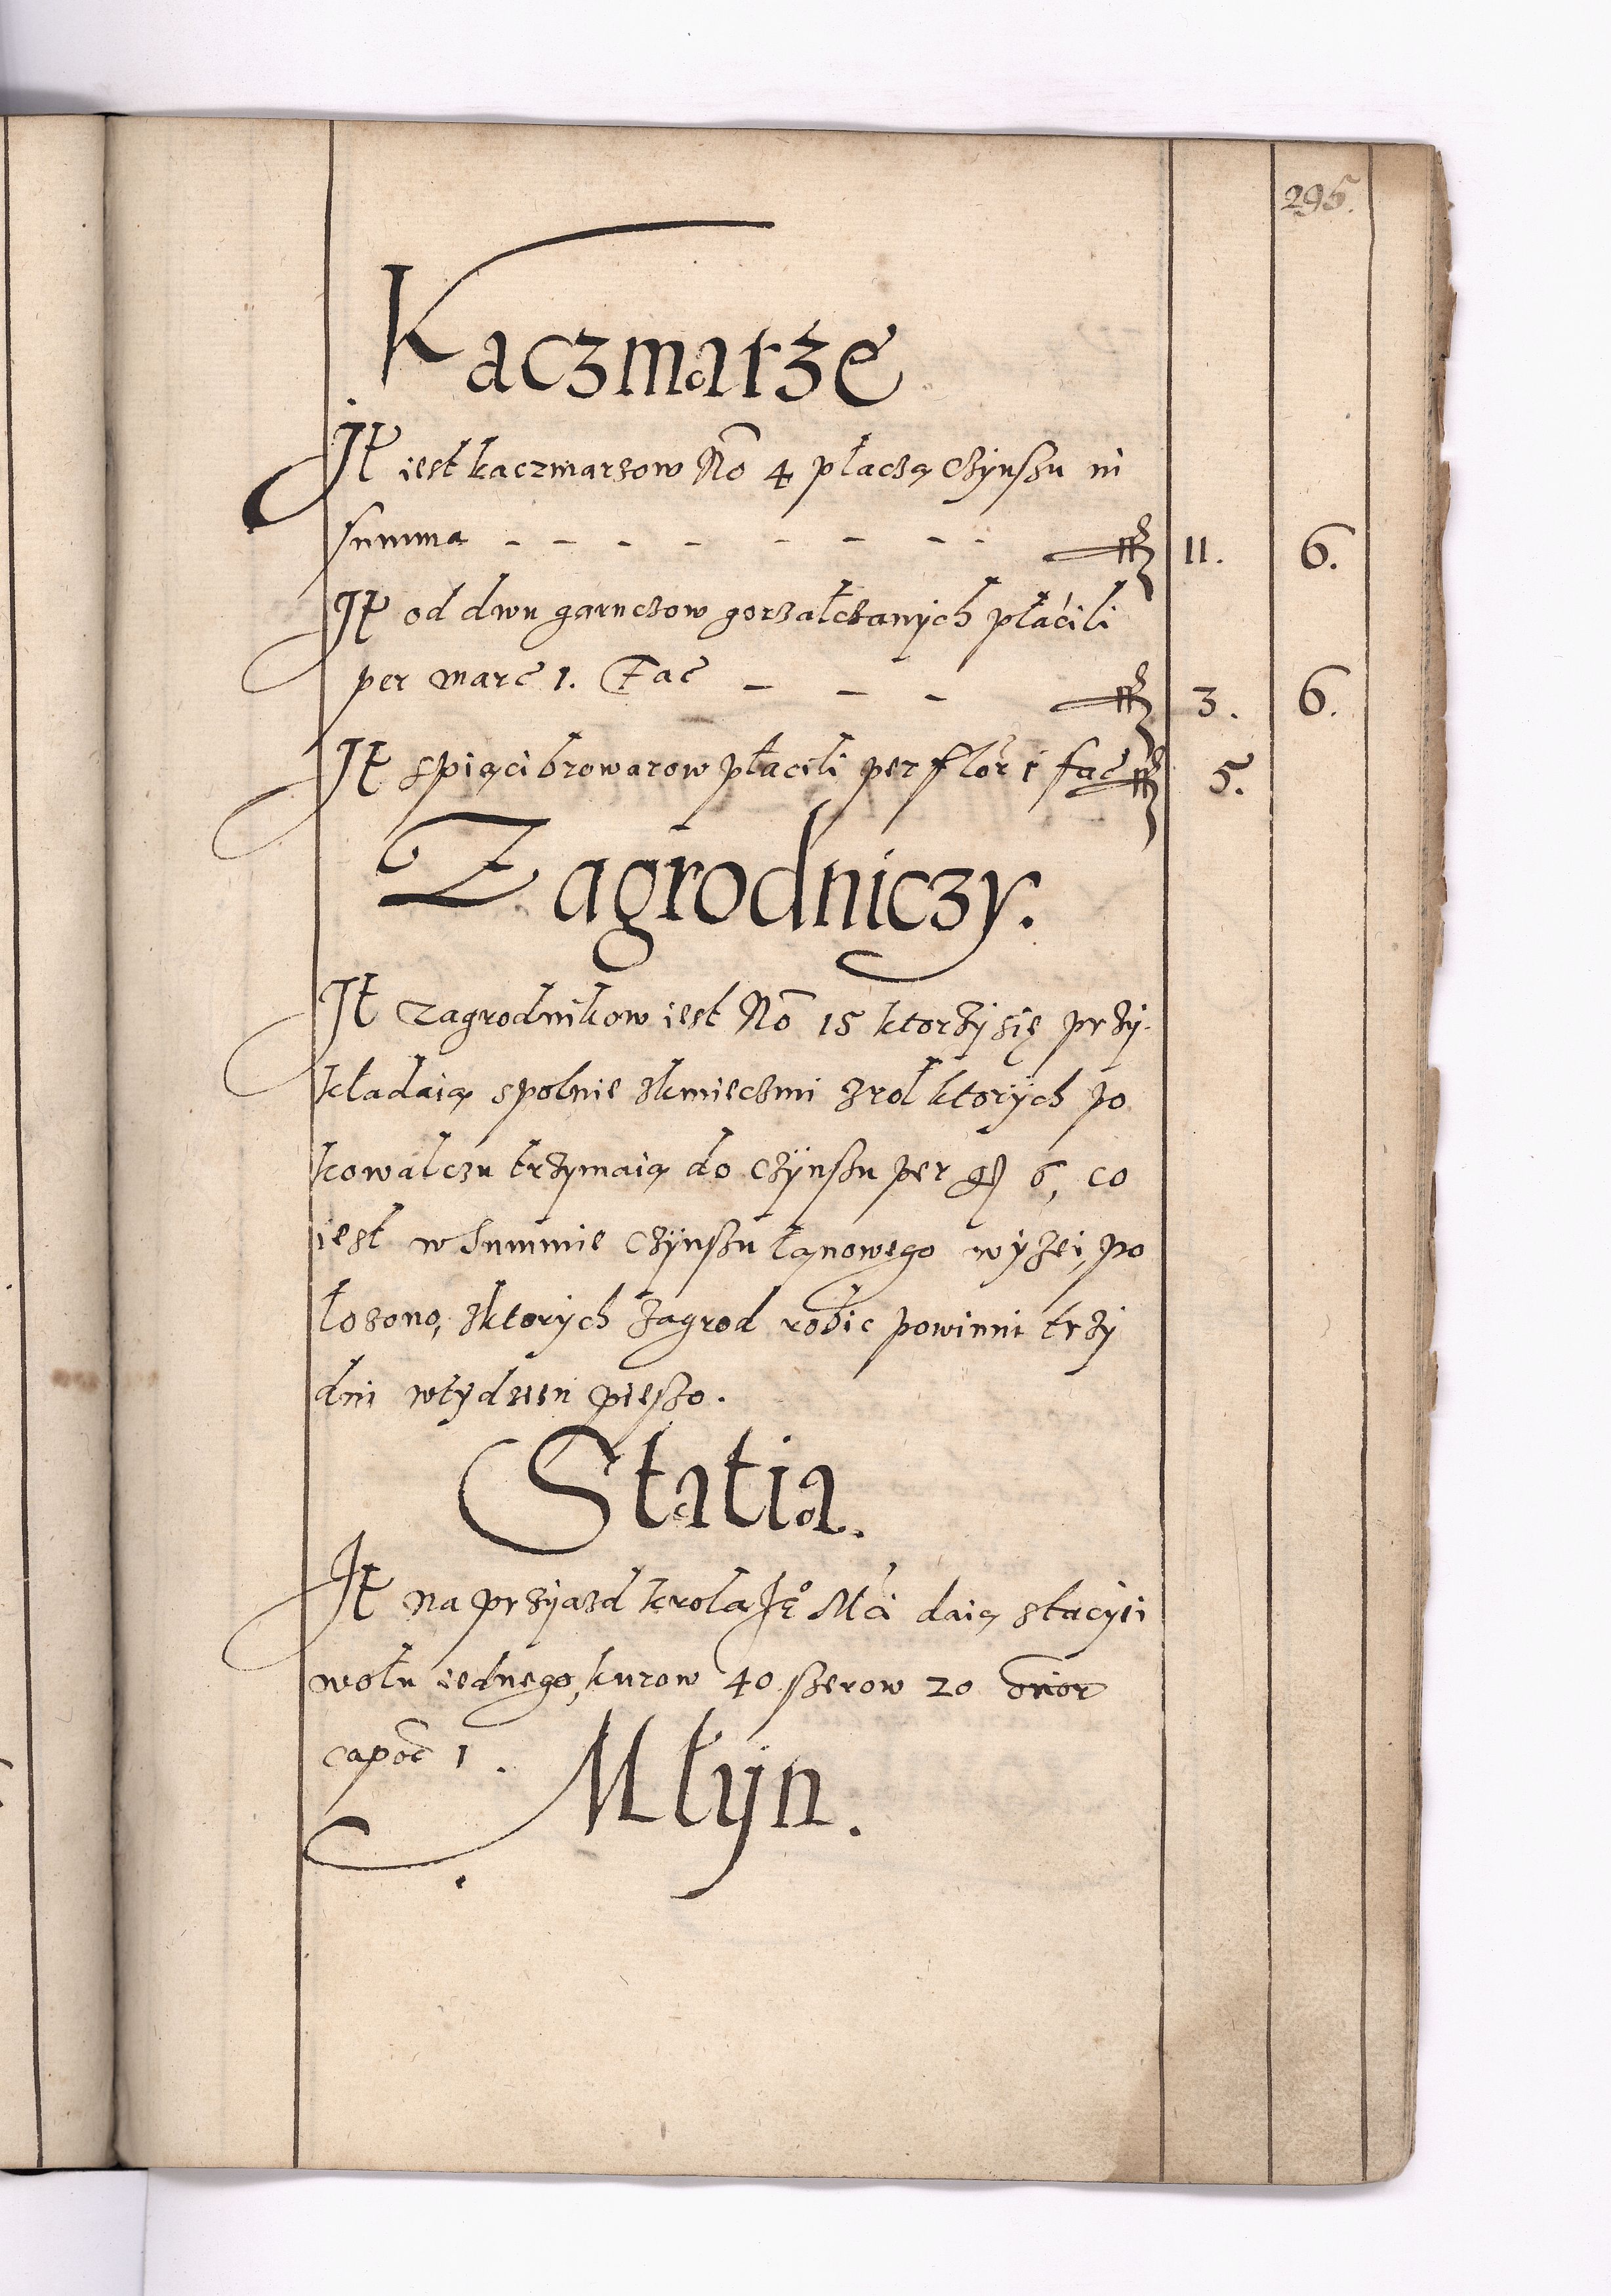 295.
Kaczmarze
It iest kaczmarzow No 4 płaczą Czÿnszu in
summa - - - - - - - - 11. 6.
It od dwu garnczow gorzałczanÿch płácili
per marc 1. Fac - - - 3. 6.
It s piąci browarow płacili per flor 1 fac 5.
Zagrodniczy.
It Zagrodnikow iest No 15 ktorzÿ się przÿ-
kładaią spolnie zkmieczmi z rol ktorÿch po
kowalczu trzÿmaią do czÿnszu per gr 6, co
iest w Summie czÿnszu łąnowego wÿzei, po
łozono, z ktorÿch zagrod robic powinni trzÿ
dni w tÿdzien pieszo.
Statia.
It na przÿiazd krola Jeo Mci daią stacÿei
wołu iednego, kurow 40 szerow 20
capoc 1.
Młÿn.